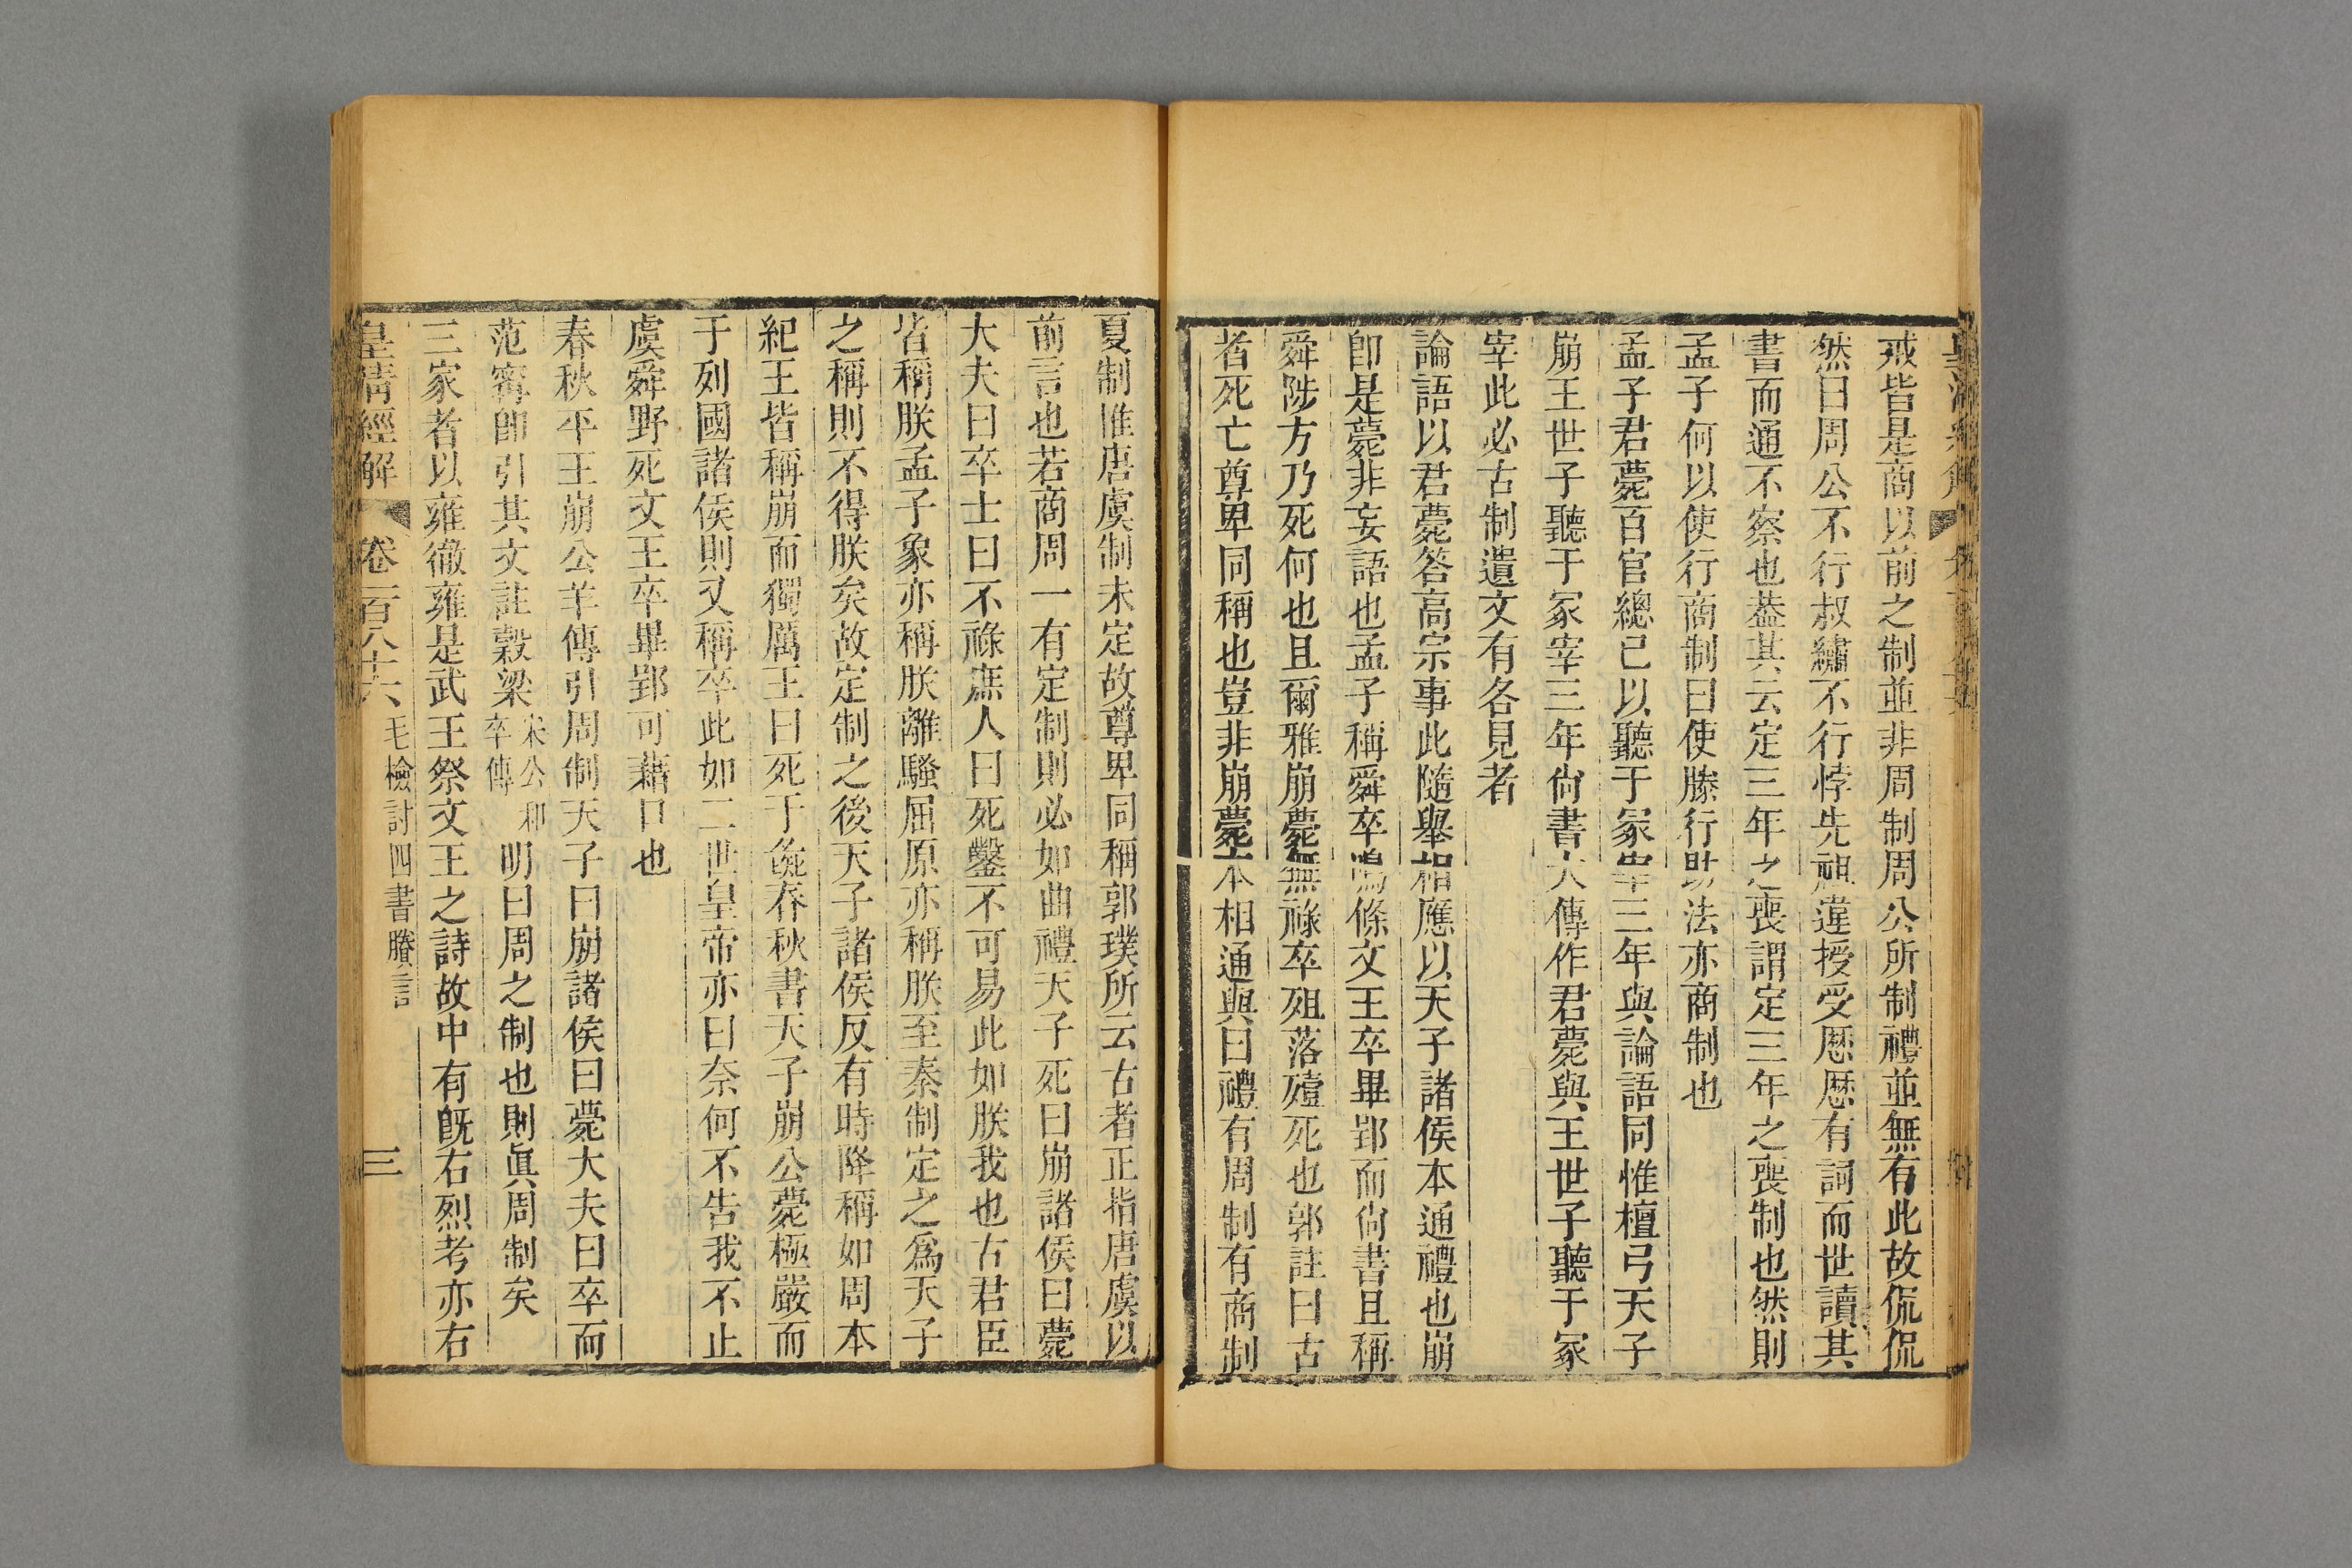 戒皆是商以前之制並非周制周公所制禮並無有此故侃侃
然曰周公不行叔繡不行悖先祖違授受歷歷有詞而世讀其
書而通不察也蓋其云定三年之喪謂定三年之喪制也然則
孟子何以使行商制曰使滕行助法亦商制也
孟子君薨百官總己以聽于冢宰三年與論語同惟檀弓天子
崩王世子聽于冢宰三年尙書大傳作君薨與王世子聽于冢
宰此必古制遺文有各見者
論語以君薨答高宗事此隨舉相應以天子諸侯本通禮也崩
卽是薨非妄語也孟子稱舜卒鳴條文王卒畢郢而尙書且稱
舜陟方乃死何也且爾雅崩薨無祿卒殂落殪死也郭註曰古
者死亡尊卑同稱也豈非崩薨本相通與曰禮有周制有商制
夏制惟唐虞制未定故尊卑同稱郭璞所云古者正指唐虞以
前言也若商周一有定制則必如曲禮天子死曰崩諸侯曰薨
大夫曰卒士曰不祿庶人曰死鑿不可易此如朕我也古君臣
皆稱朕孟子象亦稱朕離騷屈原亦稱朕至秦制定之爲天子
之稱則不得朕矣故定制之後天子諸侯反有時降稱如周本
紀王皆稱崩而獨厲王曰死于彘春秋書天子崩公薨極嚴而
于列國諸侯則又稱卒此如二世皇帝亦曰奈何不告我不止
虞舜野死文王卒畢郢可藉口也
春秋平王崩公羊傳引周制天子曰崩諸侯曰薨大夫曰卒而
范甯卽引其文註穀梁宋公和卒傳明曰周之制也則眞周制矣
三家者以雍徹雍是武王祭文王之詩故中有旣右烈考亦右
皇清經解 卷一百八十六 毛檢討四書賸言 三